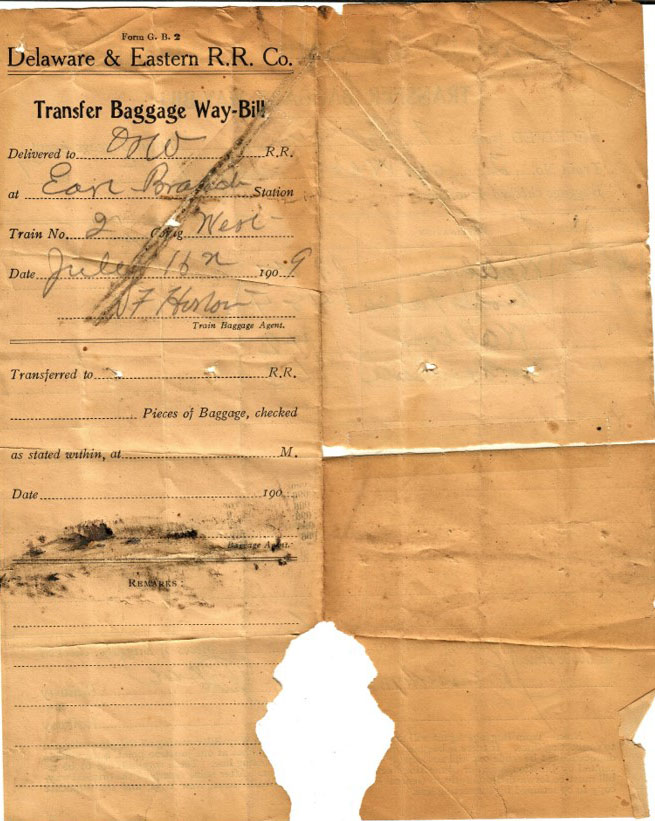 Form G. B. 2
Delaware & Eastern R.R. Co.
Transfer Baggage Way-Bill
Delivered to O&W R.R.
at East Branch Station
Train No. 2 Going West
Date July 16 1909
Train Baggage Agent.
Transferred to R.R.
Pieces of Baggage, checked
as stated within, at M.
Date 190
Baggage Agent.
REMARKS: